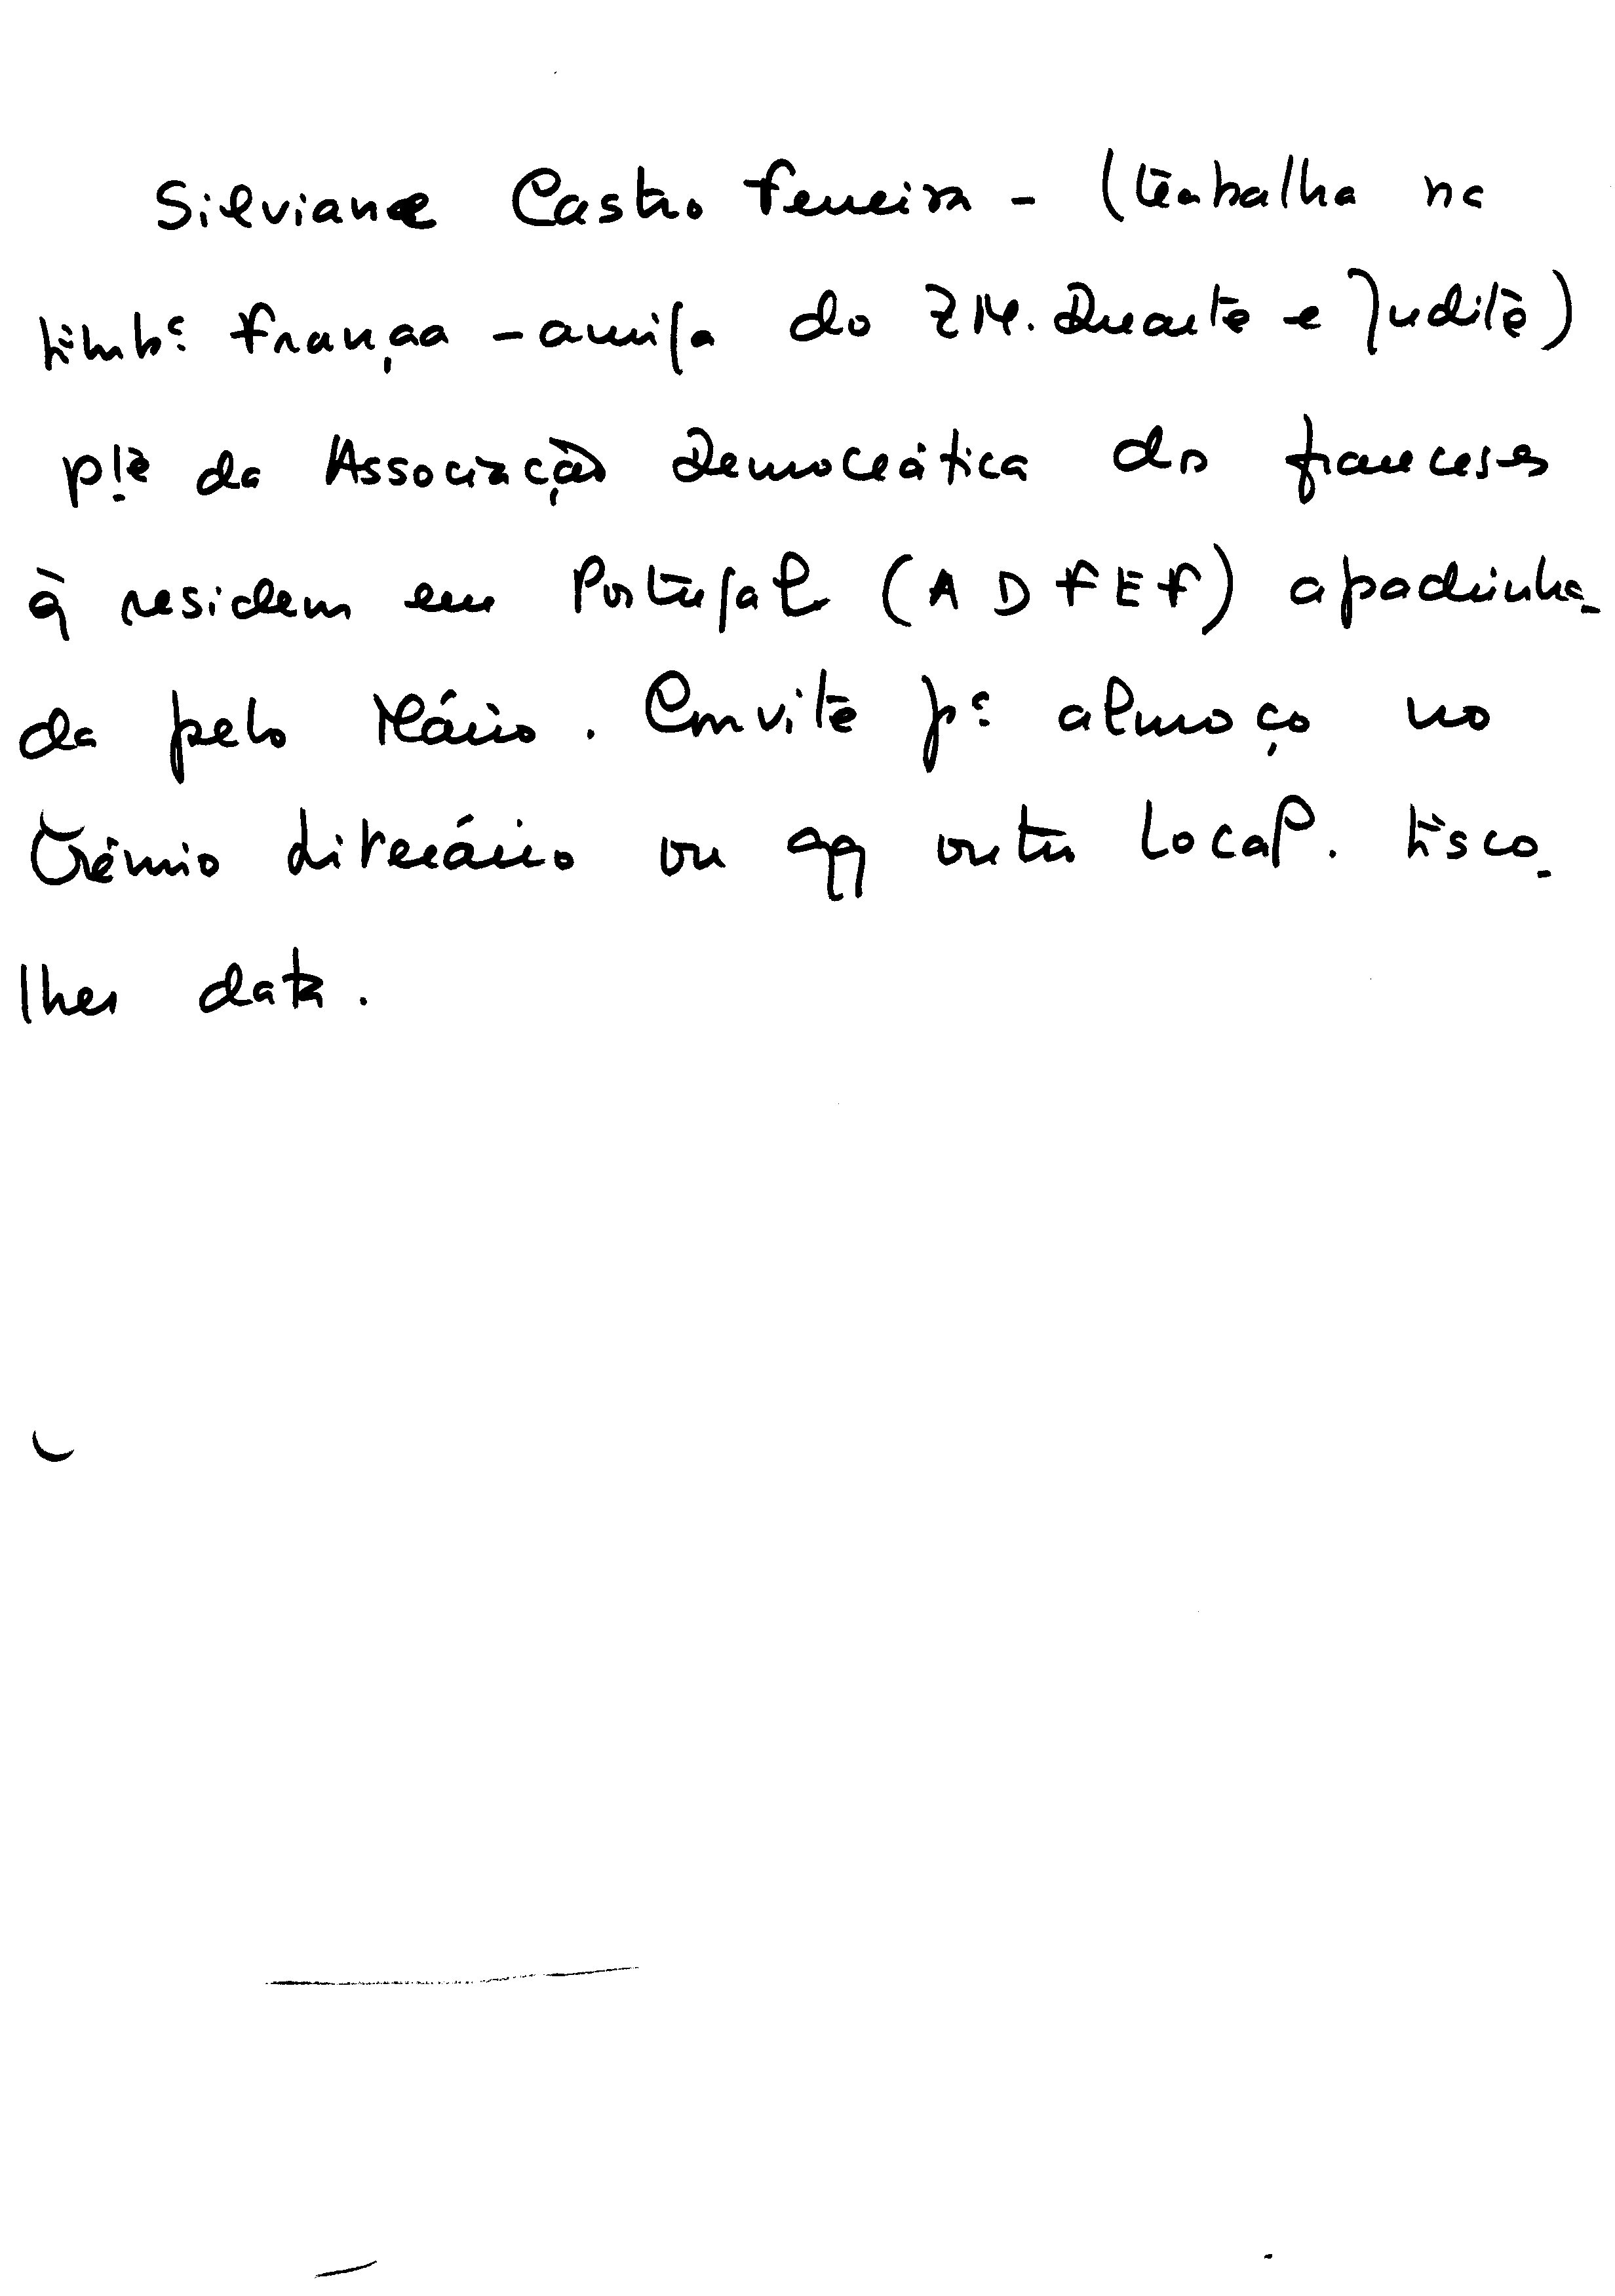 Silviane Castro Ferreira - (trabalha na
Embª França - amiga do Z M. Duarte e Judite)
p/e da Associação Democrática dos franceses
q̃ residem em Portugal (A D F E F) apadrinha-
da pelo Mário. Convite pª almoço no
Grémio Literário ou qq outro local. Esco-
lher data.